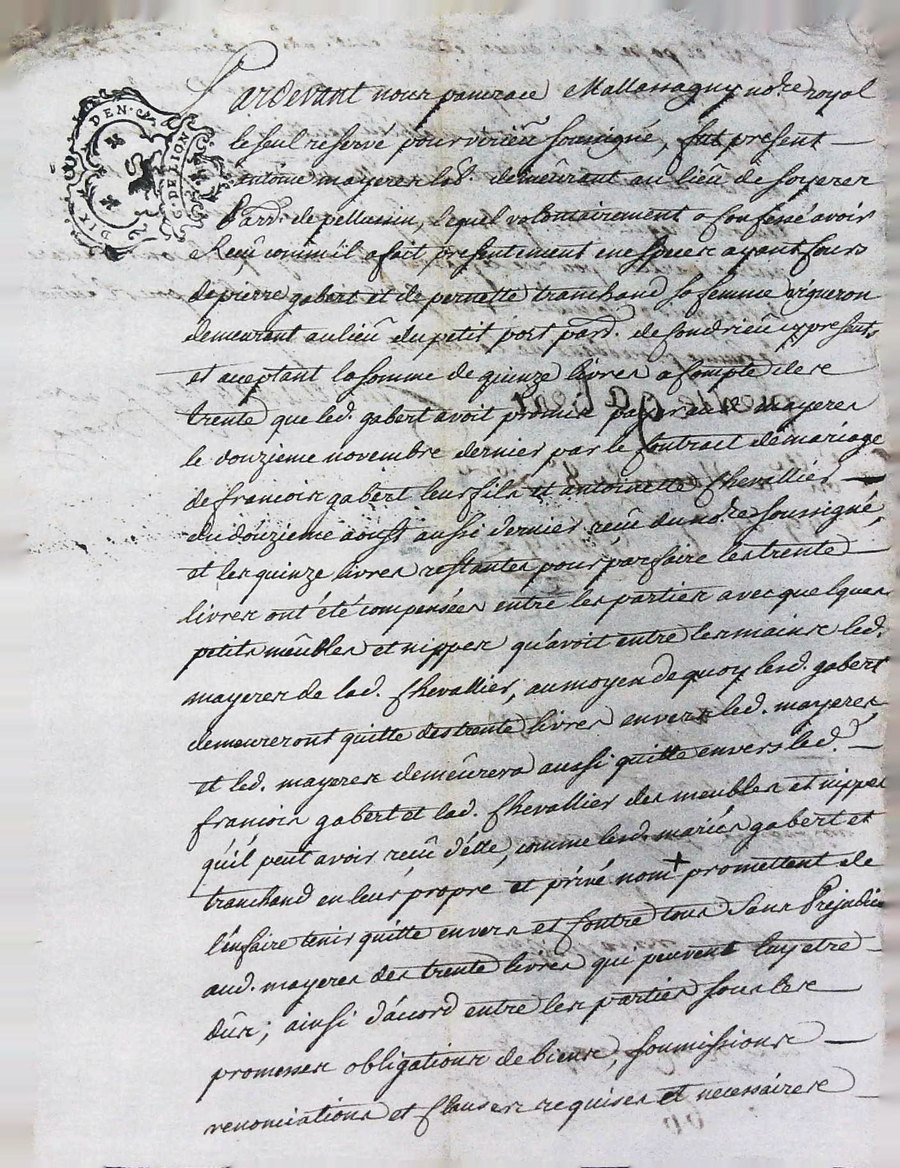 DIX DEN. G. DE LION
Pardevant nous pancrace Mallassagny no.re royal
le seul reservé pour virieu soussigné, fut present
antoine mayeres lab.r demeurant au lieu de soyeres
Par.d de pellussin, lequel volontairement a confessé avoir
Reçu comm'il a fait presentement en especes ayant cours
de pierre gabert et de pernette tranchand sa femme vigneron
demeurant au lieu du petit port par.d de condrieu cy presents
et aceptant la somme de quinze livres a compte de
trente que led. gabert avoit promis payer aud. mayeres
le douzieme novembre dernier par le Contract de mariage
de francois gabert leur fils et antoinette Chevallier
du douzieme aoust aussi dernier reçu du no.re soussigné
et les quinze livres restantes pour parfaire les trente
livres ont été compensées entre les parties avec quelques
petits meubles et nippes qu'avoit entre les mains led.
mayeres de lad. Chevallier, au moyen de quoy lesd. gabert
demeureront quitte des trente livres envers led. mayeres
et led. mayeres demeurera aussi quitte envers led.
francois gabert et lad. Chevallier des meubles et nippes
qu'il peut avoir reçu d'elle, comme lesd. mariés gabert et
tranchand en leur propre et privé nom + promettent de
l'en faire tenir quitte envers et Contre tous Sans Préjudice
aud. mayeres des trente livres qui peuvent luy etre
dus; ainsi d'acord entre les parties sous les
promesses obligations de biens, soumissions
renonciations et Clauses requises et necessaires